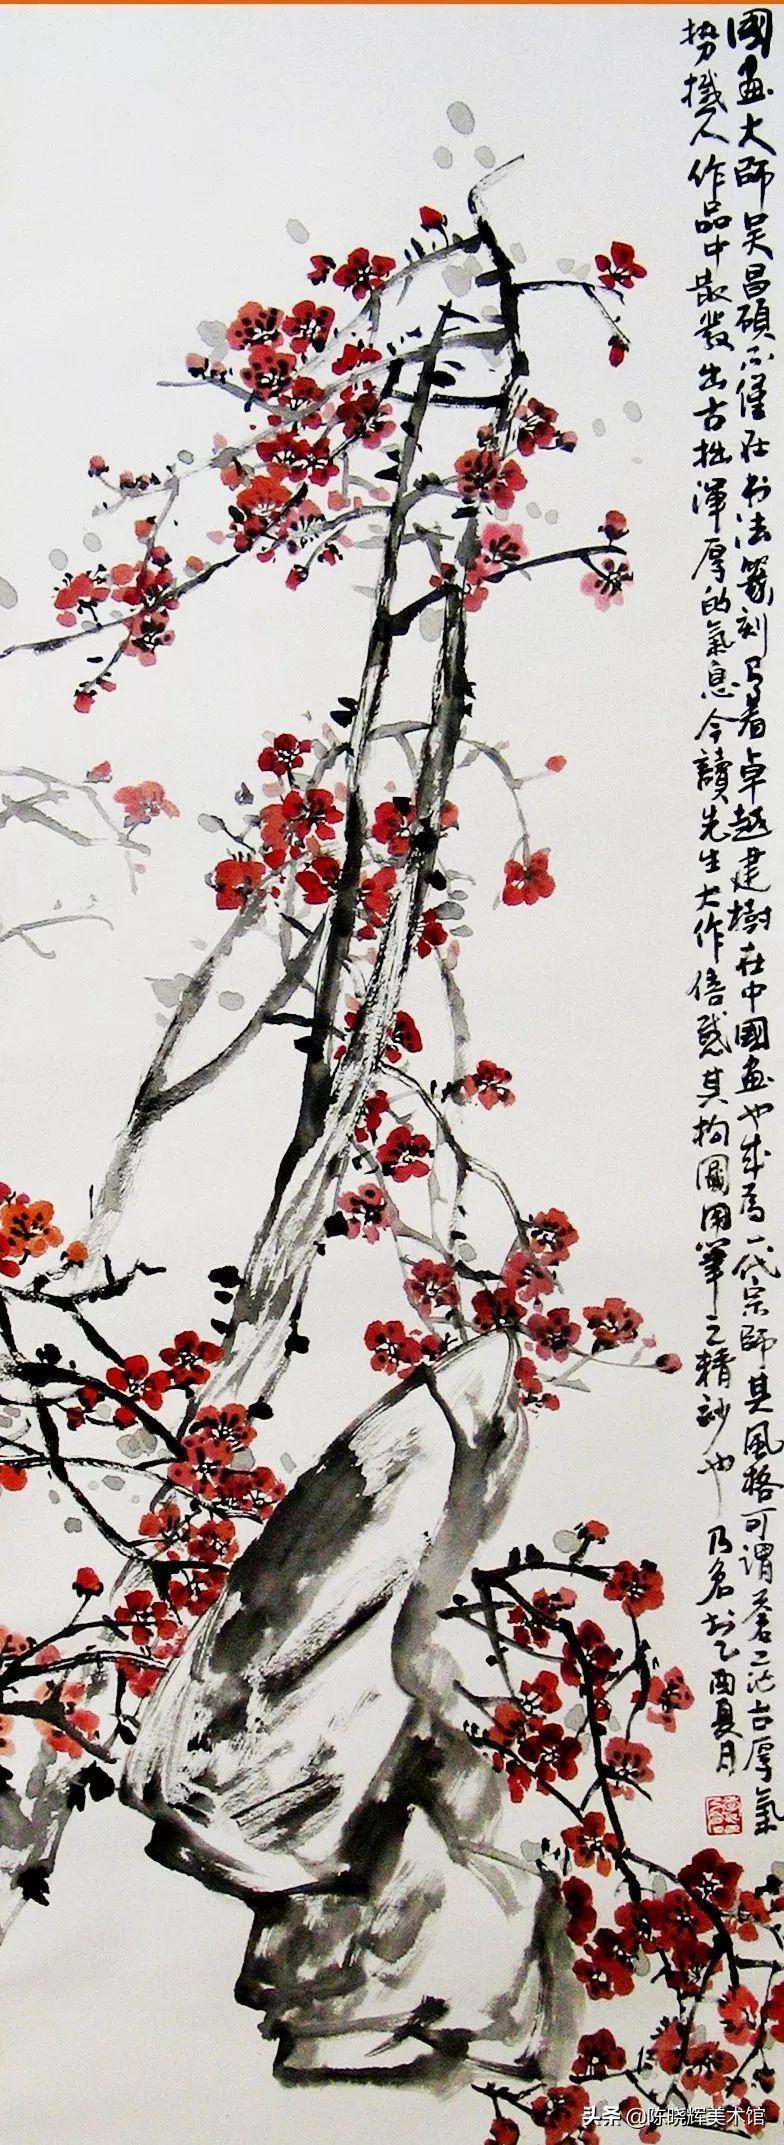 國画大師吴昌碩不僅在书法篆刻有着卓越建樹在中國画也成爲一代宗師其風格可謂蒼茫古厚氣
勢撼人作品中散發出古拙渾厚的氣息今讀先生大作倍感其构圖用筆之精妙也 乃名於乙酉夏月
头条 @陈晓辉美术馆